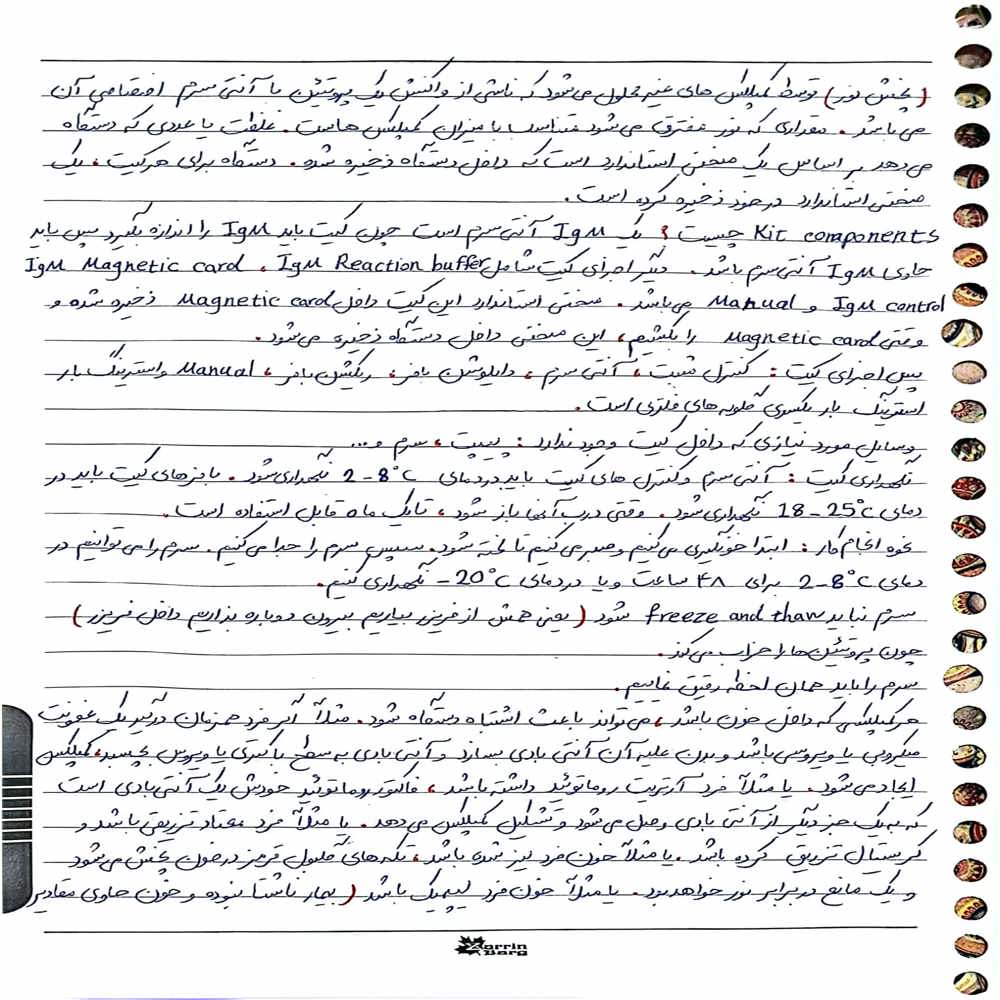 (پخش نور) توسط کمپلکس های غیر محلول می‌شود که ناشی از واکنش یک پروتئین با آنتی سرم اختصاصی آن
می باشد. مقداری که نور متفرق می‌شود متناسب با میزان کمپلکس هاست. غلظت یا عددی که دستگاه
می‌دهد بر اساس یک منحنی استاندارد است که داخل دستگاه ذخیره شده. دستگاه برای هر کیت، یک
منحنی استاندارد در خود ذخیره کرده است.
Kit components چیست؟ یک IgM آنتی سرم است چون کیت باید IgM را اندازه بگیرد پس باید
حاوی IgM آنتی سرم باشد. دیگر اجزای کیت شامل IgM Reaction buffer، IgM Magnetic card
IgM control و Manual می باشد. منحنی استاندارد این کیت داخل Magnetic card ذخیره شده و
وقتی Magnetic card را بکشیم، این منحنی داخل دستگاه ذخیره می‌شود.
پس اجزای کیت: کنترل مثبت، آنتی سرم، دایلوشن بافر، ریکشن بافر، Manual و استرینگ بار
استرینگ بار یکسری گلوله های فلزی است.
وسایل مورد نیازی که داخل کیت وجود ندارد: پیپت، سرم و...
نگهداری کیت: آنتی سرم و کنترل های کیت باید در دمای 2-8°c نگهداری شود. بافرهای کیت باید در
دمای 18-25°c نگهداری شود. وقتی درب آنها باز شود، تا یک ماه قابل استفاده است.
نحوه انجام کار: ابتدا خونگیری می‌کنیم و صبر می‌کنیم تا لخته شود. سپس سرم را جدا می‌کنیم. سرم را می توانیم در
دمای 2-8°c برای ۴۸ ساعت و یا در دمای -20°c نگهداری کنیم.
سرم نباید freeze and thaw شود (یعنی همش از فریزر بیاریم بیرون دوباره بذاریم داخل فریزر)
چون پروتئین ها را خراب می‌کند.
سرم را باید همان لحظه رقیق نماییم.
هر کمپلکسی که داخل خون باشد، می‌تواند باعث اشتباه دستگاه شود. مثلاً اگر فرد همزمان درگیر یک عفونت
میکروبی یا ویروسی باشد و بدن علیه آن آنتی بادی بسازد و آنتی بادی به سطح باکتری یا ویروس بچسبد، کمپلکس
ایجاد می‌شود. یا مثلاً فرد آرتریت روماتوئید داشته باشد، فاکتور روماتوئید خودش یک آنتی بادی است
که به یک جز دیگر از آنتی بادی وصل می‌شود و تشکیل کمپلکس می دهد. یا مثلاً فرد معتاد تزریقی باشد و
کریستال تزریق کرده باشد. یا مثلاً خون فرد لیز شده باشد، تکه های گلبول قرمز در خون پخش می‌شود
و یک مانع در برابر نور خواهد بود. یا مثلاً خون فرد لیپمیک باشد (بیمار ناشتا نبوده و خون حاوی مقادیر
Zarrin Barg